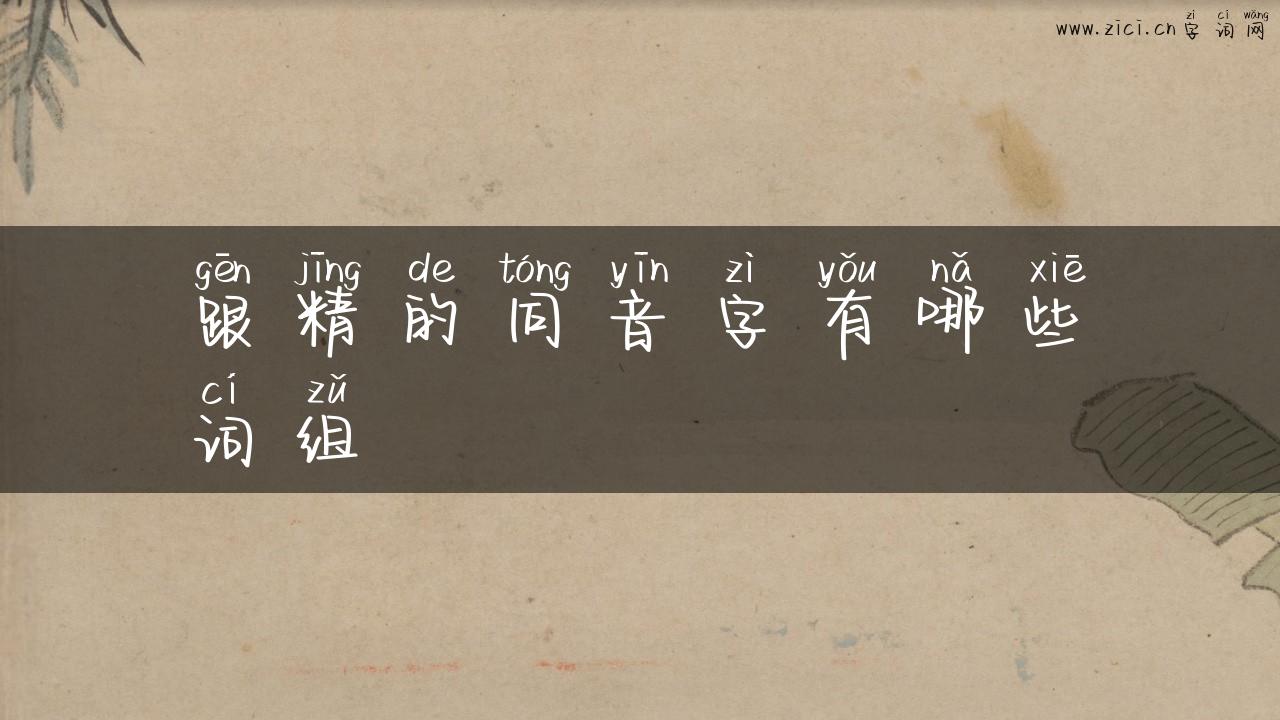 zì cí wǎng
www.zici.cn 字词网
gēn jīng de tóng yīn zì yǒu nǎ xiē
跟精的同音字有哪些
cí zǔ
词组